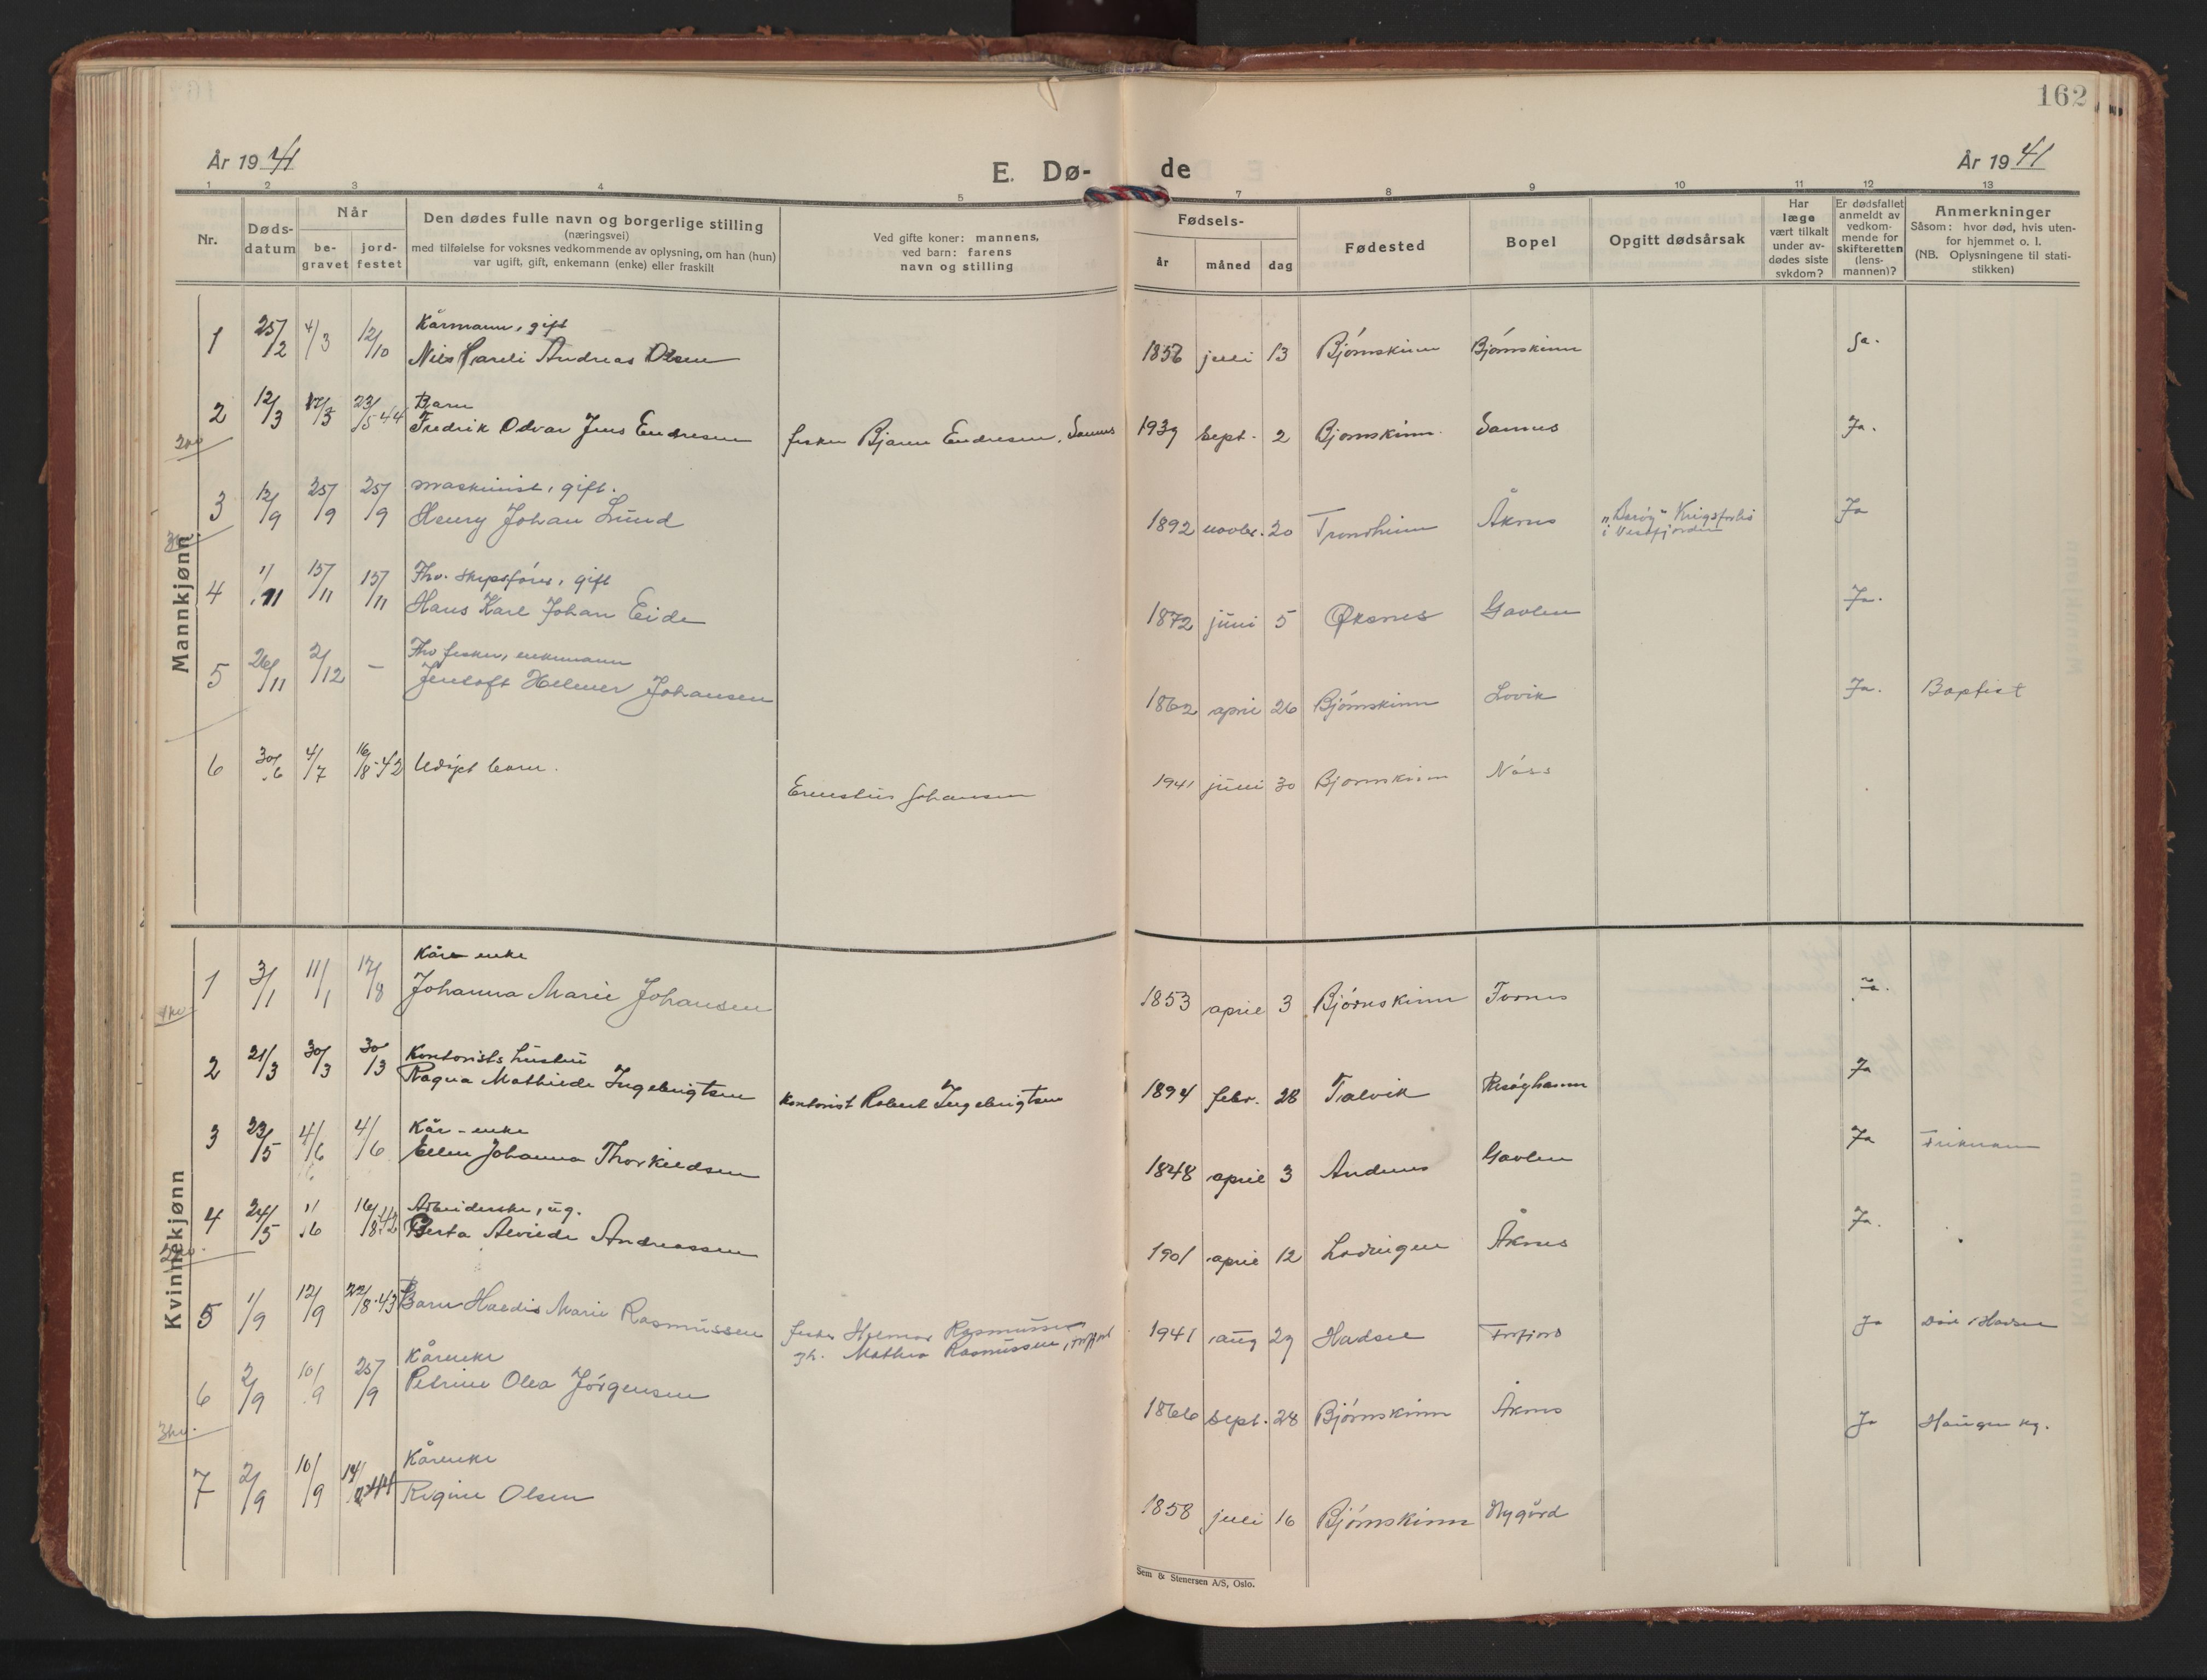 162
År 1941
E. Dø-
de
År 1941
1 2 3 4 5 7 8 9 10 11 12 13
Nr.
Døds-
datum
Når
be-
gravet
jord-
festet
Den dødes fulle navn og borgerlige stilling
(næringsvei)
med tilføielse for voksnes vedkommende av oplysning, om han (hun)
var ugift, gift, enkemann (enke) eller fraskilt
Ved gifte koner: mannens,
ved barn: farens
navn og stilling
Fødsels-
år
måned
dag
Fødested
Bopel
Opgitt dødsårsak
Har
læge
vært tilkalt
under av-
dødes siste
sykdom?
Er dødsfallet
anmeldt av
vedkom-
mende for
skifteretten
(lens-
mannen)?
Anmerkninger
Såsom: hvor død, hvis uten-
for hjemmet o. l.
(NB. Oplysningene til stati-
stikken)
Mannkjønn
Kårmann, gift
1 25/2 4/3 12/10 Nils Andreas Olsen 1856 juli 13 Bjørnskinn Bjørnskinn Ja.
Barn
2 12/3 17/3 23/5-44 Fredrik Odvar Jens Endresen fisker Bjarne Endresen, 1939 sept. 2 Bjørnskinn Ja.
maskinist, gift.
3 12/9 25/9 25/9 Henry Johan Lund 1892 novbr. 20 Trondheim Åknes "Barøy" Krigsforlis Ja
i Vestfjorden
Fhv. skipsfører, gift
4 1/11 15/11 15/11 Hans Karl Johan Eide 1872 juni 5 Øksnes Gavlen Ja.
Fhv fisker, enkemann
5 26/11 2/12 - Jentoft Helmer Johansen 1862 april 26 Bjørnskinn Lovik Ja. Baptist
6 30/6 4/7 16/8-42 Udøpt barn. Ernestus Johansen 1941 juni 30 Bjørnskinn
Kvinnekjønn
Kår enke
1 3/1 11/1 17/8 Johanna Marie Johansen 1853 april 3 Bjørnskinn Fornes Ja.
Kontorists hustru
2 21/3 30/3 30/3 Ragna Mathilde Ingebrigtsen Kontorist Robert Ingebrigtsen 1894 febr. 28 Talvik Risøyhamn Ja
Kår-enke
3 23/5 4/6 4/6 Ellen Johanna Thorkildsen 1848 april 3 Andenes Gavlen Ja
Arbeiderske, ug.
4 24/5 1/6 16/8-42 Berta Alvilde Andreassen 1901 april 12 Lødingen Åknes Ja.
5 1/9 12/9 22/8-43 Barn Haldis Marie Rasmussen fisker Hilmar Rasmussen 1941 aug 29 Hadsel Forfjord Ja Død i Hadsel
Mathea Rasmussen, Forfjord
Kårenke
6 2/9 10/9 25/9 Petrine Olea Jørgensen 1866 sept. 28 Bjørnskinn Åknes Ja Haugen kg.
Kårenke
7 2/9 10/9 Regine Olsen 1858 juli 16 Bjørnskinn Nygård
Sem & Stenersen A/S, Oslo.